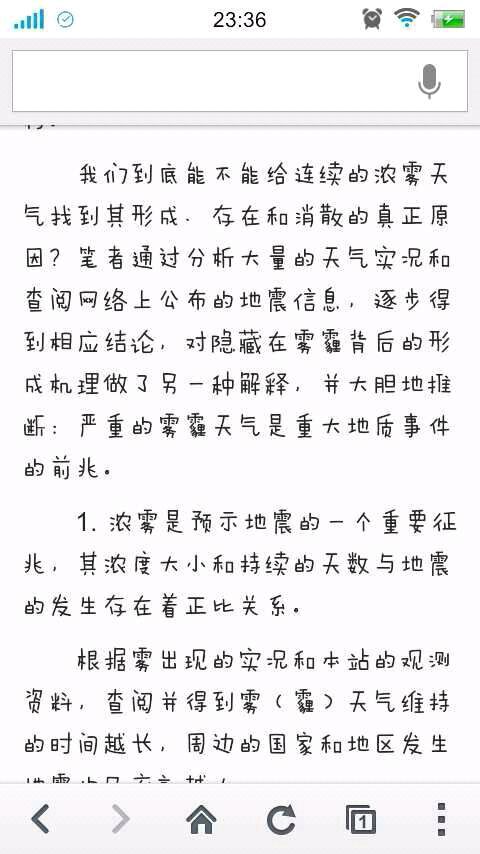 23:36
我们到底能不能给连续的浓雾天
气找到其形成、存在和消散的真正原
因？笔者通过分析大量的天气实况和
查阅网络上公布的地震信息，逐步得
到相应结论，对隐藏在雾霾背后的形
成机理做了另一种解释，并大胆地推
断：严重的雾霾天气是重大地质事件
的前兆。
1. 浓雾是预示地震的一个重要征
兆，其浓度大小和持续的天数与地震
的发生存在着正比关系。
根据雾出现的实况和本站的观测
资料，查阅并得到雾（霾）天气维持
的时间越长，周边的国家和地区发生
1